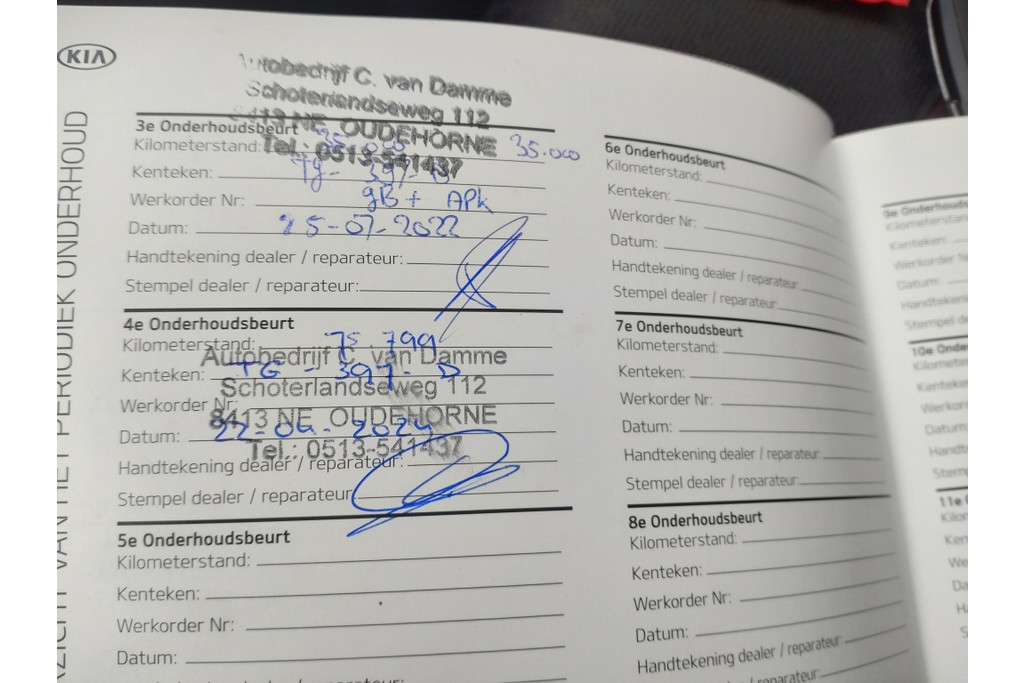 KIA
VAN HET PERIODIEK ONDERHOUD
Autobedrijf C. van Damme
Schoterlandseweg 112
8413 NE OUDEHORNE
Tel.: 0513-541437
3e Onderhoudsbeurt
Kilometerstand: 35.000
Kenteken: TG-397-
Werkorder Nr: gB + APk
Datum: 25-07-2022
Handtekening dealer / reparateur:
Stempel dealer / reparateur:
4e Onderhoudsbeurt
Kilometerstand: 75 799
Autobedrijf C. van Damme
Kenteken: TG - 397 - D
Schoterlandseweg 112
Werkorder Nr:
8413 NE OUDEHORNE
Datum: 22-0 -2024
Tel.: 0513-541437
Handtekening dealer / reparateur:
Stempel dealer / reparateur
5e Onderhoudsbeurt
Kilometerstand:
Kenteken:
Werkorder Nr:
Datum:
6e Onderhoudsbeurt
Kilometerstand:
Kenteken:
Werkorder Nr:
Datum:
Handtekening dealer / reparateur:
Stempel dealer / reparateur:
7e Onderhoudsbeurt
Kilometerstand:
Kenteken:
Werkorder Nr:
Datum:
Handtekening dealer / reparateur:
Stempel dealer / reparateur:
8e Onderhoudsbeurt
Kilometerstand:
Kenteken:
Werkorder Nr:
Datum:
Handtekening dealer / reparateur:
9e Onderhouds
Kilometerstan
Kenteken:
Werkorder
Datum:
Handteken
Stempel de
10e Onde
Kilomete
Kenteke
Werkor
Datum
Handt
Stem
11e
Kilo
Ken
We
Da
H
S